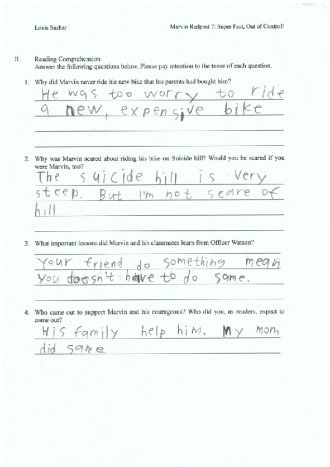 Louis Sachar
Marvin Redpost 7: Super Fast, Out of Control!
II. Reading Comprehension
Answer the following questions below. Please pay attention to the tense of each question.
1. Why did Marvin never ride his new bike that his parents had bought him?
He was too worry to ride
a new, expensive bike
2. Why was Marvin scared about riding his bike on Suicide hill? Would you be scared if you
were Marvin, too?
The suicide hill is very
steep. But I'm not scare of
hill
3. What important lessons did Marvin and his classmates learn from Officer Watson?
Your friend do something mean
you doesn't have to do same.
4. Who came out to support Marvin and his courageous? Who did you, as readers, expect to
come out?
His family help him. My mom
did same